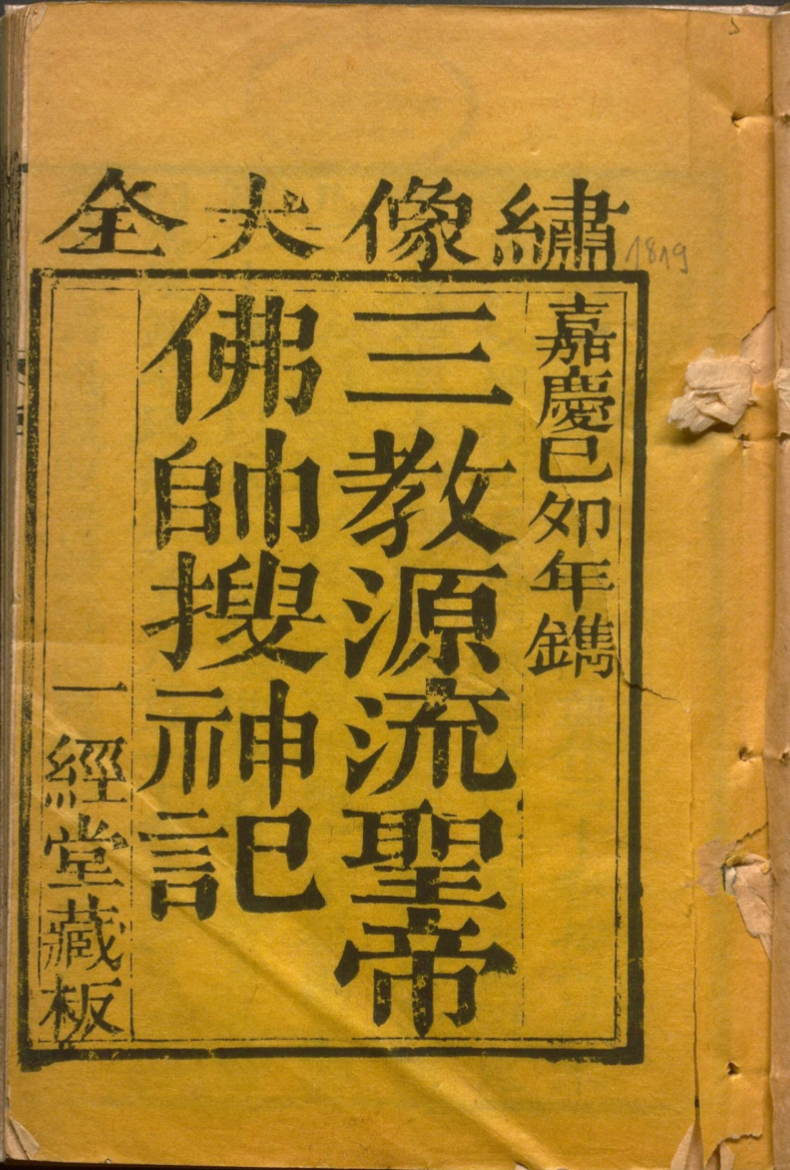 繡像大全
1819
嘉慶己卯年鐫
三教源流聖帝
佛帥搜神記
一經堂藏板